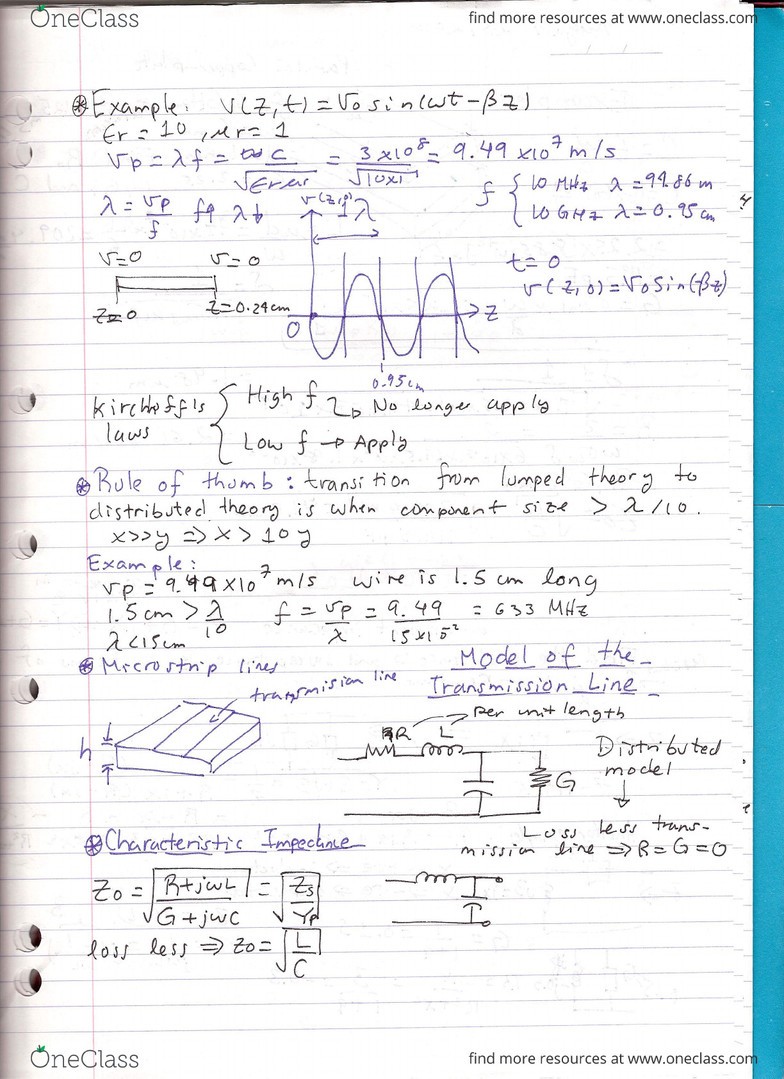 OneClass
find more resources at www.oneclass.com
⊛ Example: V(z, t) = V0 sin(ωt − βz)
Er = 10, μr = 1
Vp = λf = C/√(Er μr) = 3 x10^8/√(10x1) = 9.49 x10^7 m/s
f { 10 MHz λ = 94.86 m
10 GHz λ = 0.95 cm
λ = Vp/f f↑ λ↓
v(z,0) 1λ
V=0 V=0
t=0
v(z,0) = V0 Sin(-βz)
z=0 z=0.24cm
0 z
0.95cm
Kirchoff's laws { High f → No longer apply
Low f → Apply
⊛ Rule of thumb: transition from lumped theory to
distributed theory is when component size > λ/10.
x>>y ⇒ x > 10y
Example:
Vp = 9.49 x10^7 m/s wire is 1.5 cm long
1.5 cm > λ/10 f = Vp/λ = 9.49/15x10^-2 = 633 MHz
λ<15cm
⊛ Microstrip lines
transmision line
h
Model of the
Transmission Line
R L → Per unit length
G
Distributed
model
↓
Loss less trans-
mission line ⇒ R = G = 0
⊛ Characteristic Impedance
Z0 = √((R+jωL)/(G+jωC)) = √(Zs/Yp)
loss less ⇒ Z0 = √(L/C)
OneClass
find more resources at www.oneclass.com